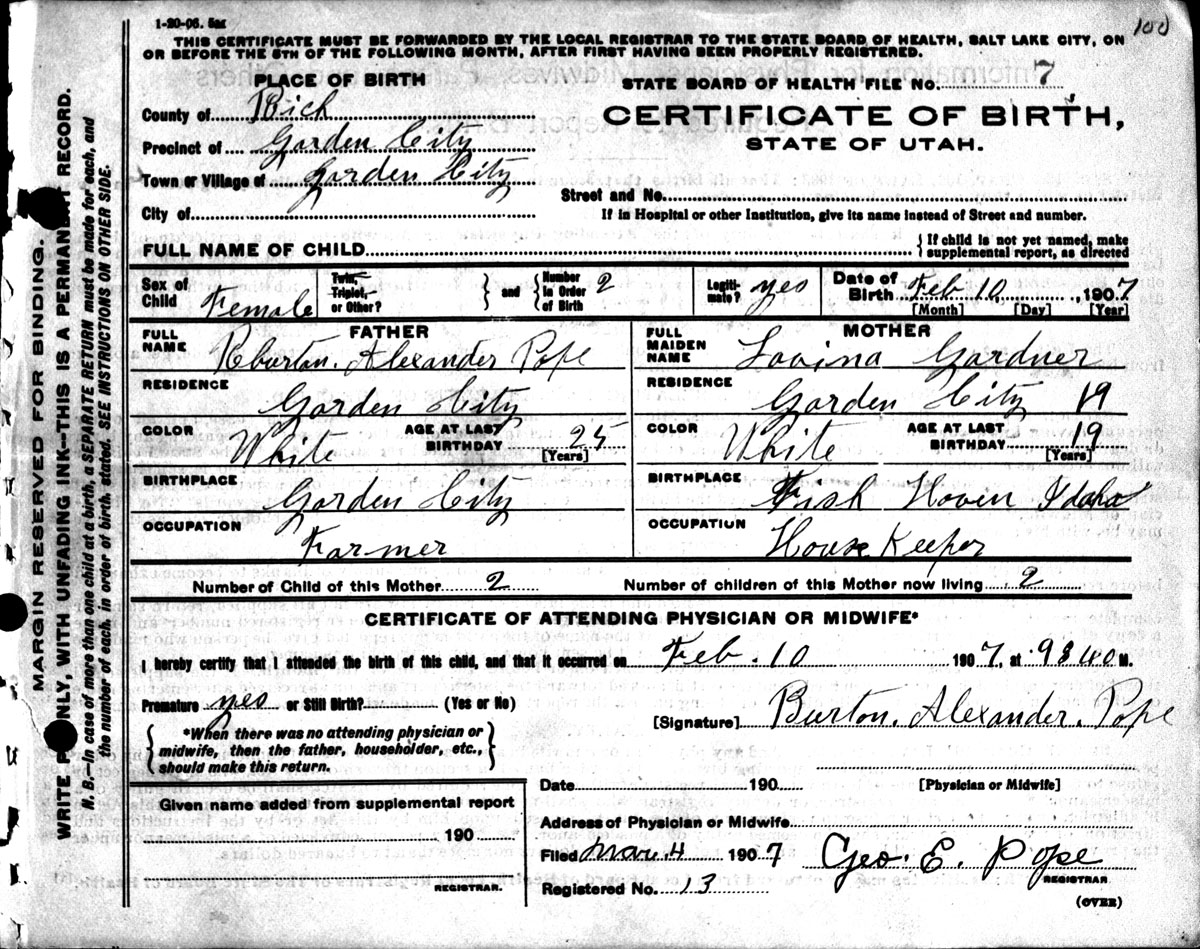 1-20-06. 5M
100
THIS CERTIFICATE MUST BE FORWARDED BY THE LOCAL REGISTRAR TO THE STATE BOARD OF HEALTH, SALT LAKE CITY, ON
OR BEFORE THE 5TH OF THE FOLLOWING MONTH, AFTER FIRST HAVING BEEN PROPERLY REGISTERED.
PLACE OF BIRTH
STATE BOARD OF HEALTH FILE NO. 7
County of Rich
CERTIFICATE OF BIRTH,
Precinct of Garden City
STATE OF UTAH.
Town or Village of Garden City
Street and No.
City of
If in Hospital or other Institution, give its name instead of Street and number.
FULL NAME OF CHILD
{ If child is not yet named, make
supplemental report, as directed
Sex of Child Female
Twin, Triplet, or Other? } and { Number in Order of Birth 2
Legitimate? yes
Date of Birth Feb 10, 1907
[Month] [Day] [Year]
FATHER
FULL NAME Rburton. Alexander Pope
RESIDENCE Garden City
COLOR White AGE AT LAST BIRTHDAY 25 [Years]
BIRTHPLACE Garden City
OCCUPATION Farmer
MOTHER
FULL MAIDEN NAME Lovina Gardner
RESIDENCE Garden City 19
COLOR White AGE AT LAST BIRTHDAY 19 [Years]
BIRTHPLACE Fish Haven Idaho
OCCUPATION House Keeper
Number of Child of this Mother 2 Number of children of this Mother now living 2
CERTIFICATE OF ATTENDING PHYSICIAN OR MIDWIFE*
I hereby certify that I attended the birth of this child, and that it occurred on Feb. 10 1907, at M.
Premature yes or Still Birth? (Yes or No)
[Signature] Burton. Alexander. Pope
{ *When there was no attending physician or
midwife, then the father, householder, etc.,
should make this return. }
Date 190
[Physician or Midwife]
Given name added from supplemental report
Address of Physician or Midwife
190
Filed Mar. 4 1907 Geo. E. Pope
REGISTRAR
REGISTRAR.
Registered No. 13
(OVER)
MARGIN RESERVED FOR BINDING.
WRITE PLAINLY, WITH UNFADING INK—THIS IS A PERMANENT RECORD.
N. B.—In case of more than one child at a birth, a SEPARATE RETURN must be made for each, and
the number of each, in order of birth, stated. SEE INSTRUCTIONS ON OTHER SIDE.